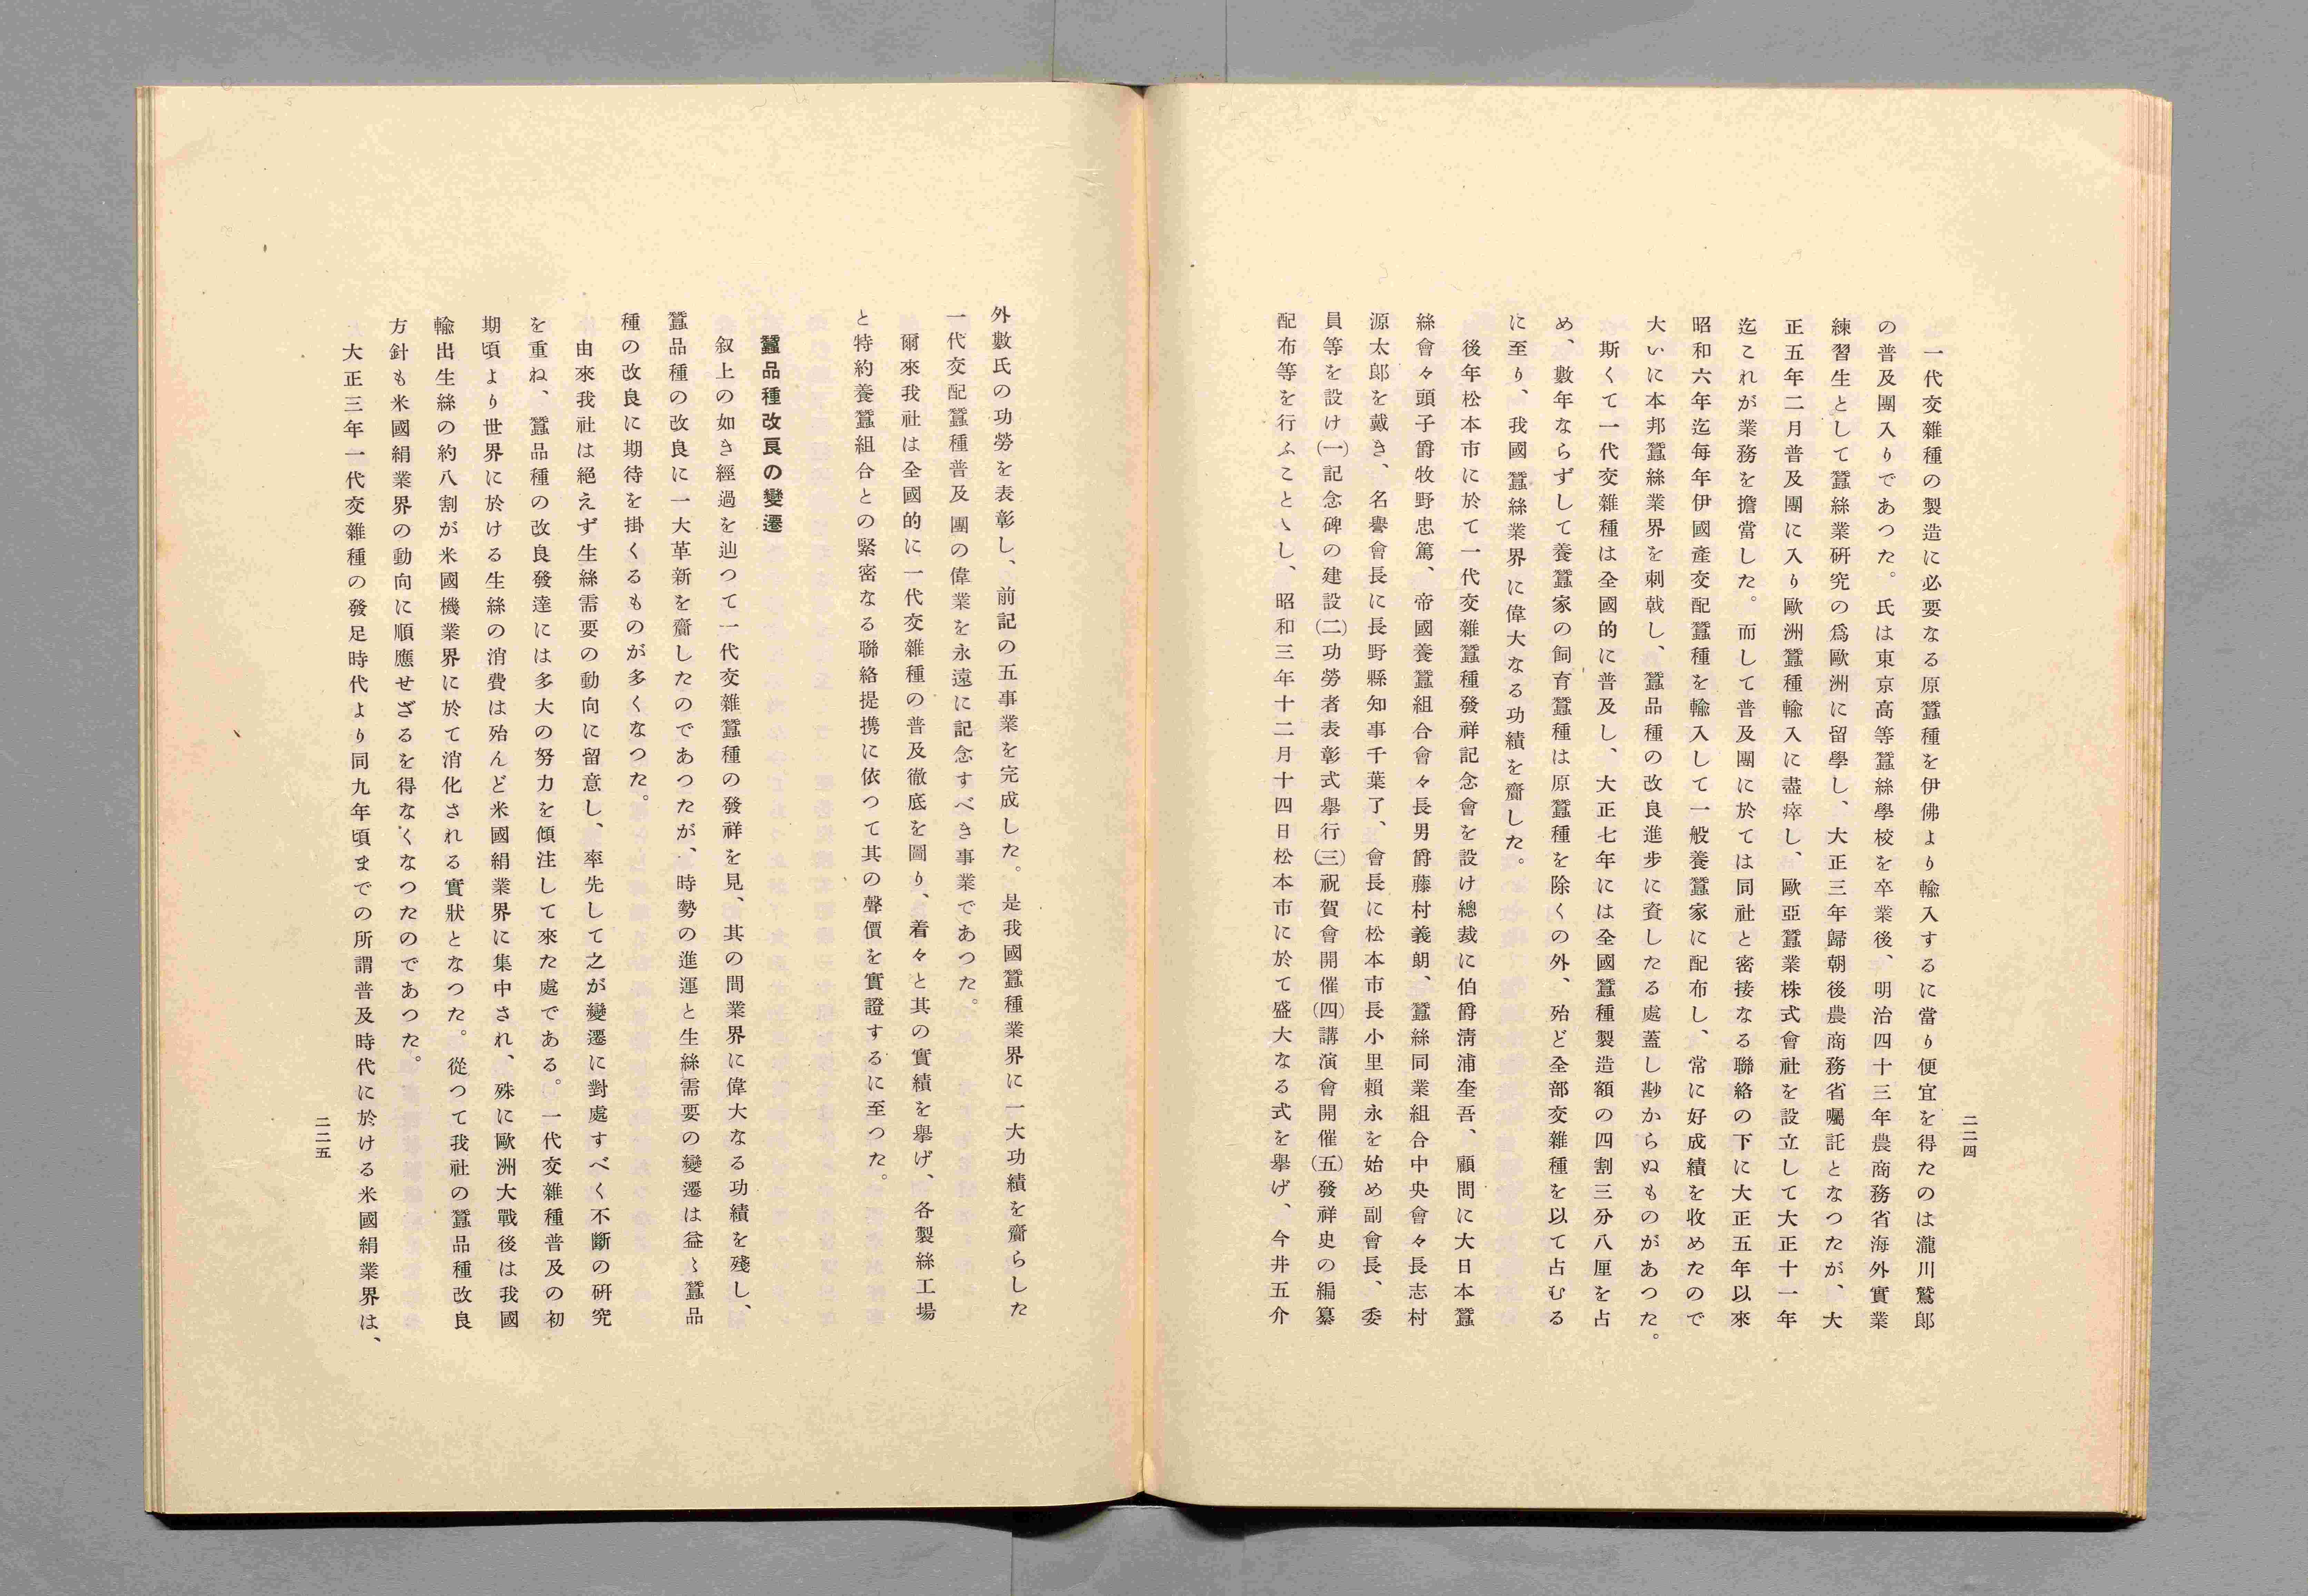 二二四
一代交雜種の製造に必要なる原蠶種を伊佛より輸入するに當り便宜を得たのは瀧川鷲郎
の普及團入りであつた。氏は東京高等蠶絲學校を卒業後、明治四十三年農商務省海外實業
練習生として蠶絲業硏究の爲歐洲に留學し、大正三年歸朝後農商務省囑託となつたが、大
正五年二月普及團に入り歐洲蠶種輸入に盡瘁し、歐亞蠶業株式會社を設立して大正十一年
迄これが業務を擔當した。而して普及團に於ては同社と密接なる聯絡の下に大正五年以來
昭和六年迄每年伊國產交配蠶種を輸入して一般養蠶家に配布し、常に好成績を收めたので
大いに本邦蠶絲業界を刺戟し、蠶品種の改良進步に資したる處蓋し尠からぬものがあつた。
斯くて一代交雜種は全國的に普及し、大正七年には全國蠶種製造額の四割三分八厘を占
め、數年ならずして養蠶家の飼育蠶種は原蠶種を除くの外、殆ど全部交雜種を以て占むる
に至り、我國蠶絲業界に偉大なる功績を齎した。
後年松本市に於て一代交雜蠶種發祥記念會を設け總裁に伯爵淸浦奎吾、顧問に大日本蠶
絲會々頭子爵牧野忠篤、帝國養蠶組合會々長男爵藤村義朗、蠶絲同業組合中央會々長志村
源太郎を戴き、名譽會長に長野縣知事千葉了、會長に松本市長小里賴永を始め副會長、委
員等を設け(一)記念碑の建設(二)功勞者表彰式擧行(三)祝賀會開催(四)講演會開催(五)發祥史の編纂
配布等を行ふことゝし、昭和三年十二月十四日松本市に於て盛大なる式を擧げ、今井五介
外數氏の功勞を表彰し、前記の五事業を完成した。是我國蠶種業界に一大功績を齎らした
一代交配蠶種普及團の偉業を永遠に記念すべき事業であつた。
爾來我社は全國的に一代交雜種の普及徹底を圖り、着々と其の實績を擧げ、各製絲工場
と特約養蠶組合との緊密なる聯絡提携に依つて其の聲價を實證するに至つた。
蠶品種改良の變遷
叙上の如き經過を辿つて一代交雜蠶種の發祥を見、其の間業界に偉大なる功績を殘し、
蠶品種の改良に一大革新を齎したのであつたが、時勢の進運と生絲需要の變遷は益〻蠶品
種の改良に期待を掛くるものが多くなつた。
由來我社は絕えず生絲需要の動向に留意し、率先して之が變遷に對處すべく不斷の硏究
を重ね、蠶品種の改良發達には多大の努力を傾注して來た處である。一代交雜種普及の初
期頃より世界に於ける生絲の消費は殆んど米國絹業界に集中され、殊に歐洲大戰後は我國
輸出生絲の約八割が米國機業界に於て消化される實狀となつた。從つて我社の蠶品種改良
方針も米國絹業界の動向に順應せざるを得なくなつたのであつた。
大正三年一代交雜種の發足時代より同九年頃までの所謂普及時代に於ける米國絹業界は、
二二五